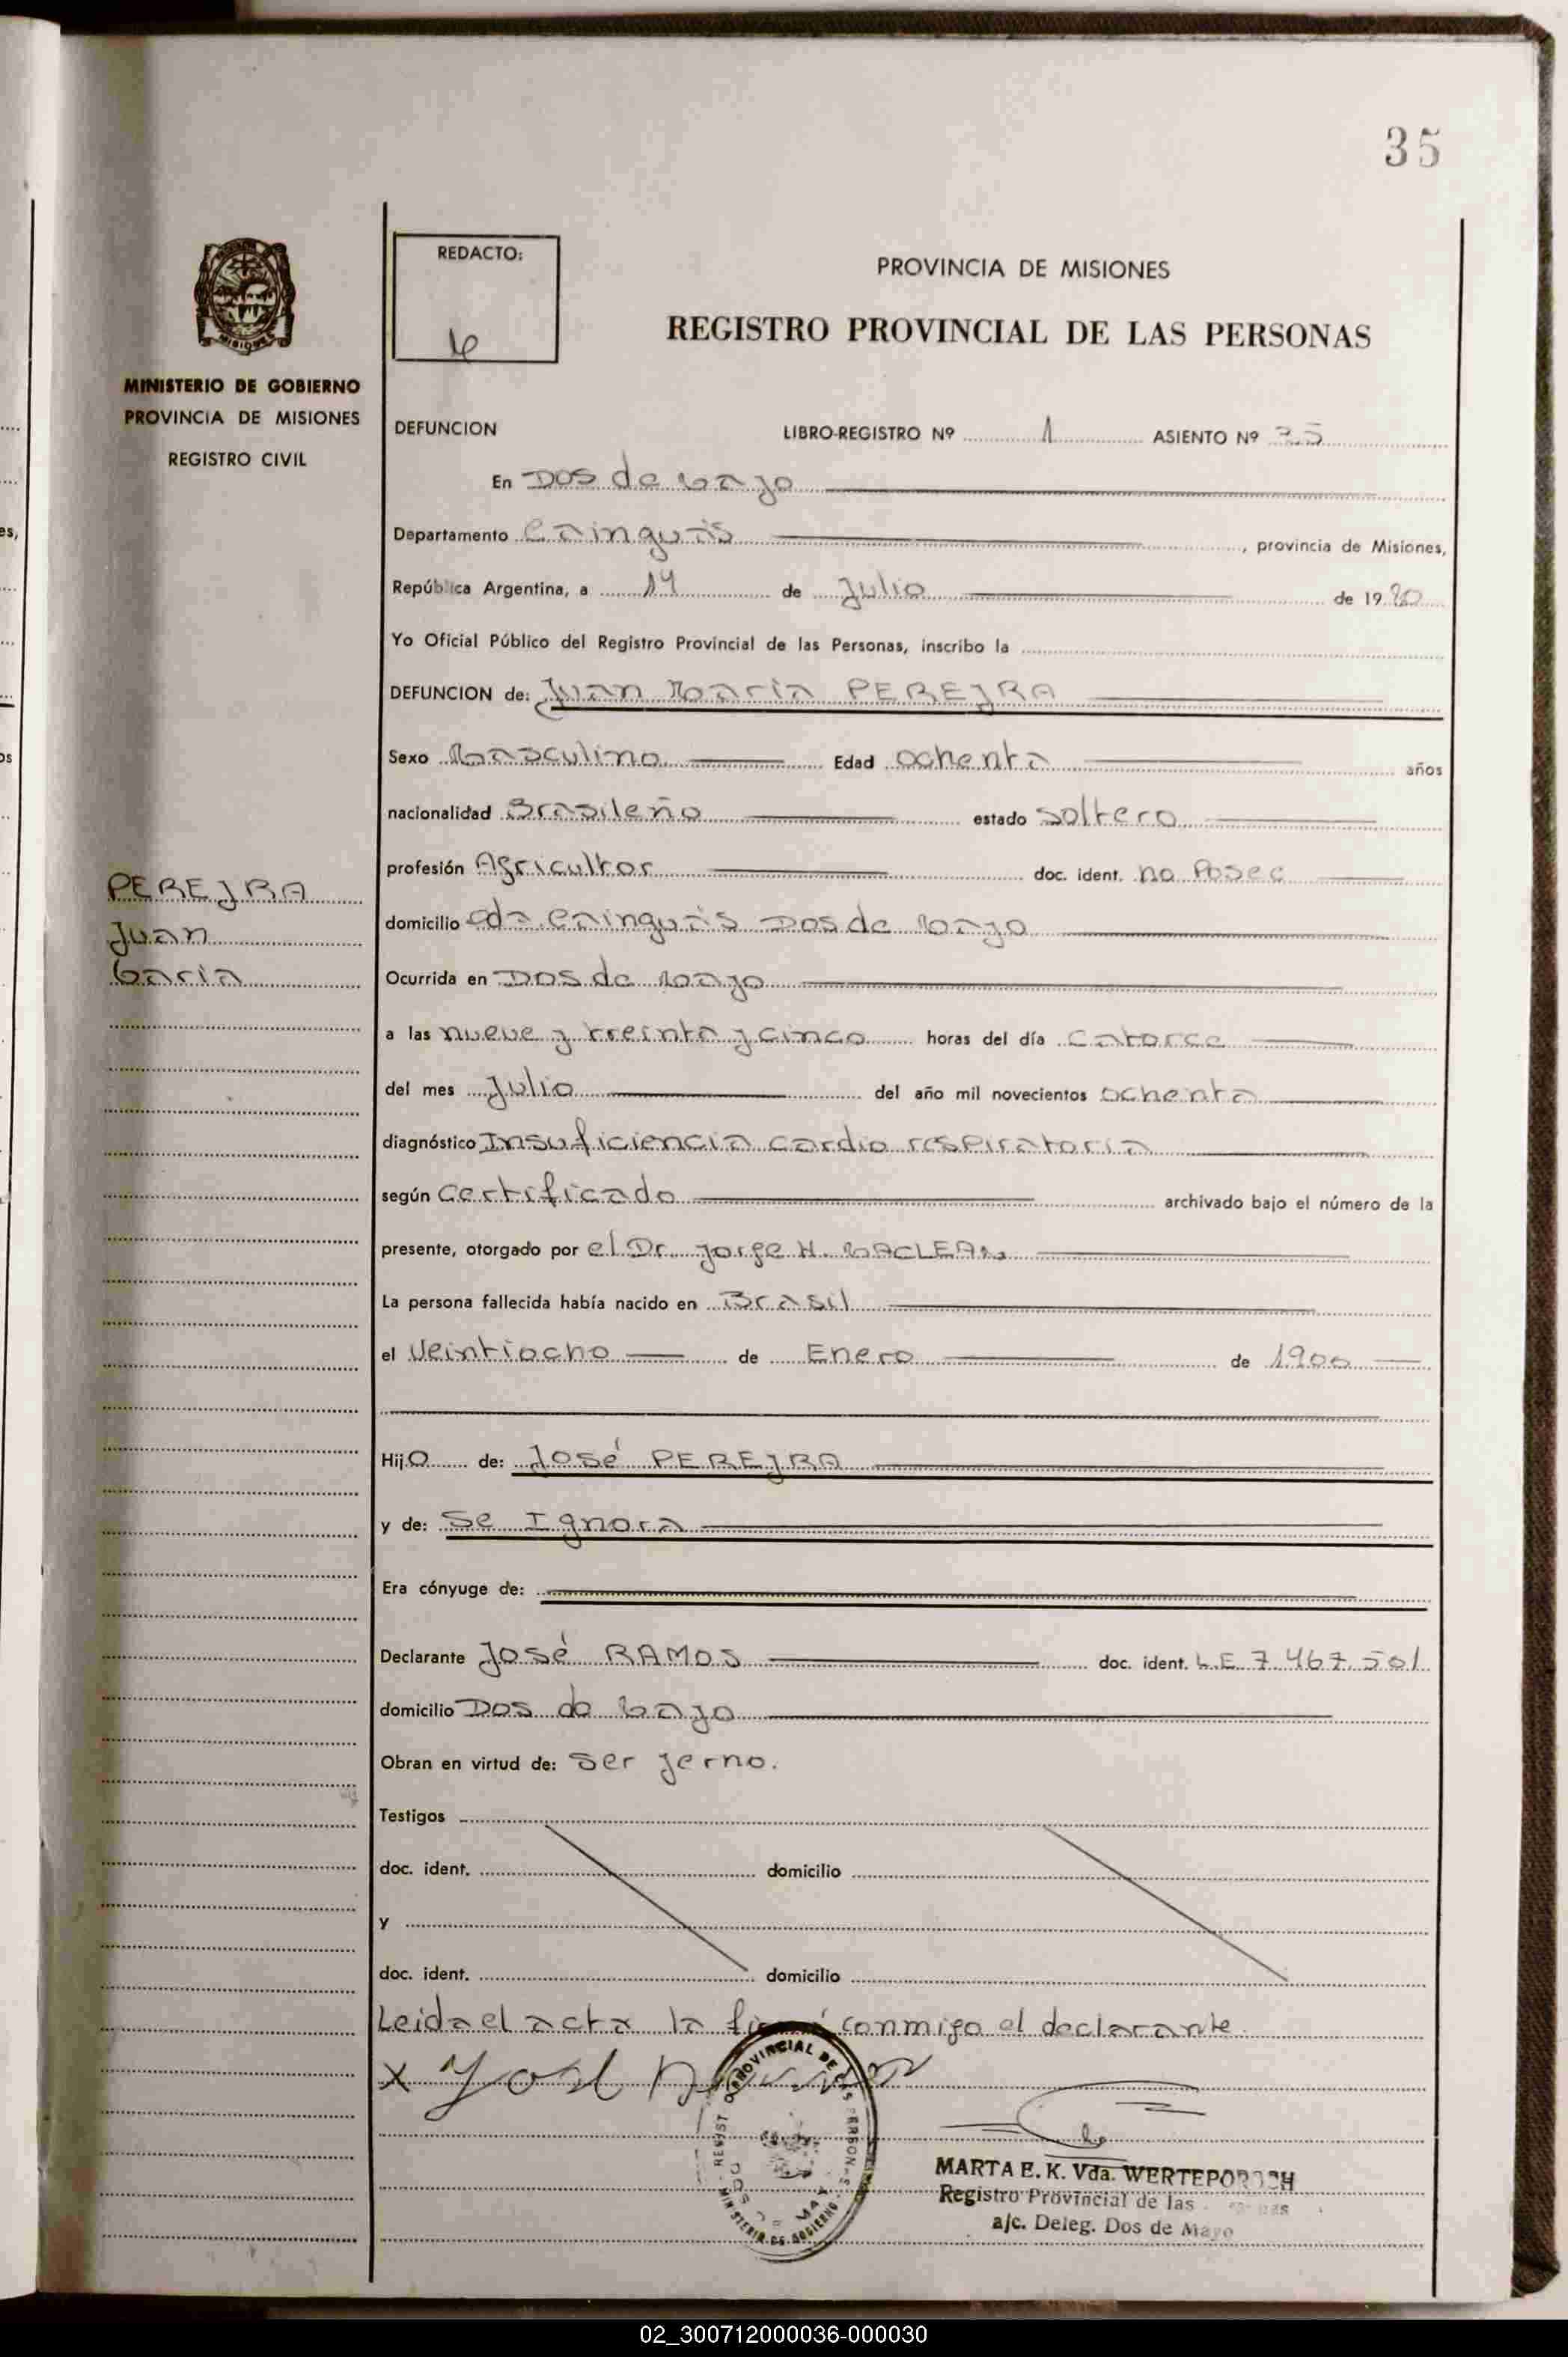 35
REDACTO:
PROVINCIA DE MISIONES
REGISTRO PROVINCIAL DE LAS PERSONAS
MISIONES
MINISTERIO DE GOBIERNO
PROVINCIA DE MISIONES
REGISTRO CIVIL
DEFUNCION LIBRO-REGISTRO Nº 1 ASIENTO Nº 35
En Dos de Mayo
Departamento Cainguás, provincia de Misiones,
República Argentina, a 14 de Julio de 1980
Yo Oficial Público del Registro Provincial de las Personas, inscribo la
DEFUNCION de: Juan Maria PEREJRA
Sexo Masculino Edad ochenta años
nacionalidad Brasileño estado soltero
profesión Agricultor doc. ident. no Posee
PEREJRA
Juan
Maria
domicilio cda. Cainguás Dos de Mayo
Ocurrida en Dos de Mayo
a las nueve y treinta y cinco horas del día catorce
del mes Julio del año mil novecientos ochenta
diagnóstico Insuficiencia cardio respiratoria
según certificado archivado bajo el número de la
presente, otorgado por el Dr. Jorge H. MACLEAN
La persona fallecida había nacido en Brasil
el Veintiocho de Enero de 1900
Hijo de: José PEREJRA
y de: Se Ignora
Era cónyuge de:
Declarante José RAMOS doc. ident. L.E. 7.467.501
domicilio Dos de Mayo
Obran en virtud de: ser yerno.
Testigos
doc. ident. domicilio
y
doc. ident. domicilio
Leida el acta la firmó conmigo el declarante.
x José Ramos
MARTA E. K. Vda. WERTEPO
Registro Provincial de las
a/c. Deleg. Dos de Mayo
02_300712000036-000030